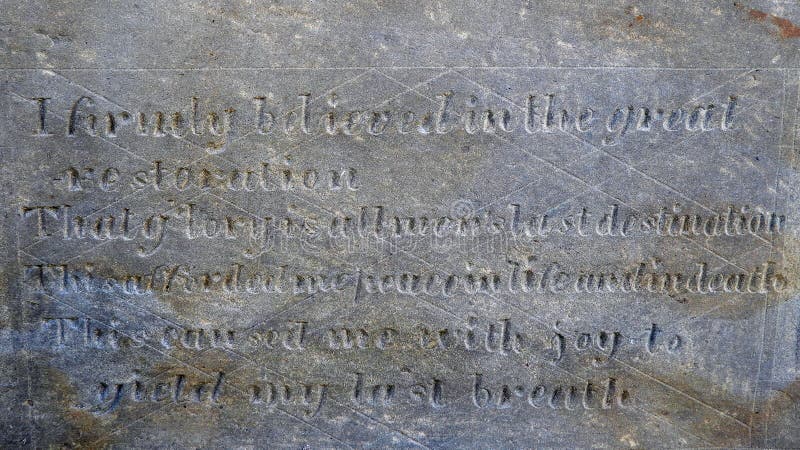 I firmly believed in the great
restoration
That glory is all men's last destination
This afforded me peace in life and in death
This caused me with joy to
yield my last breath